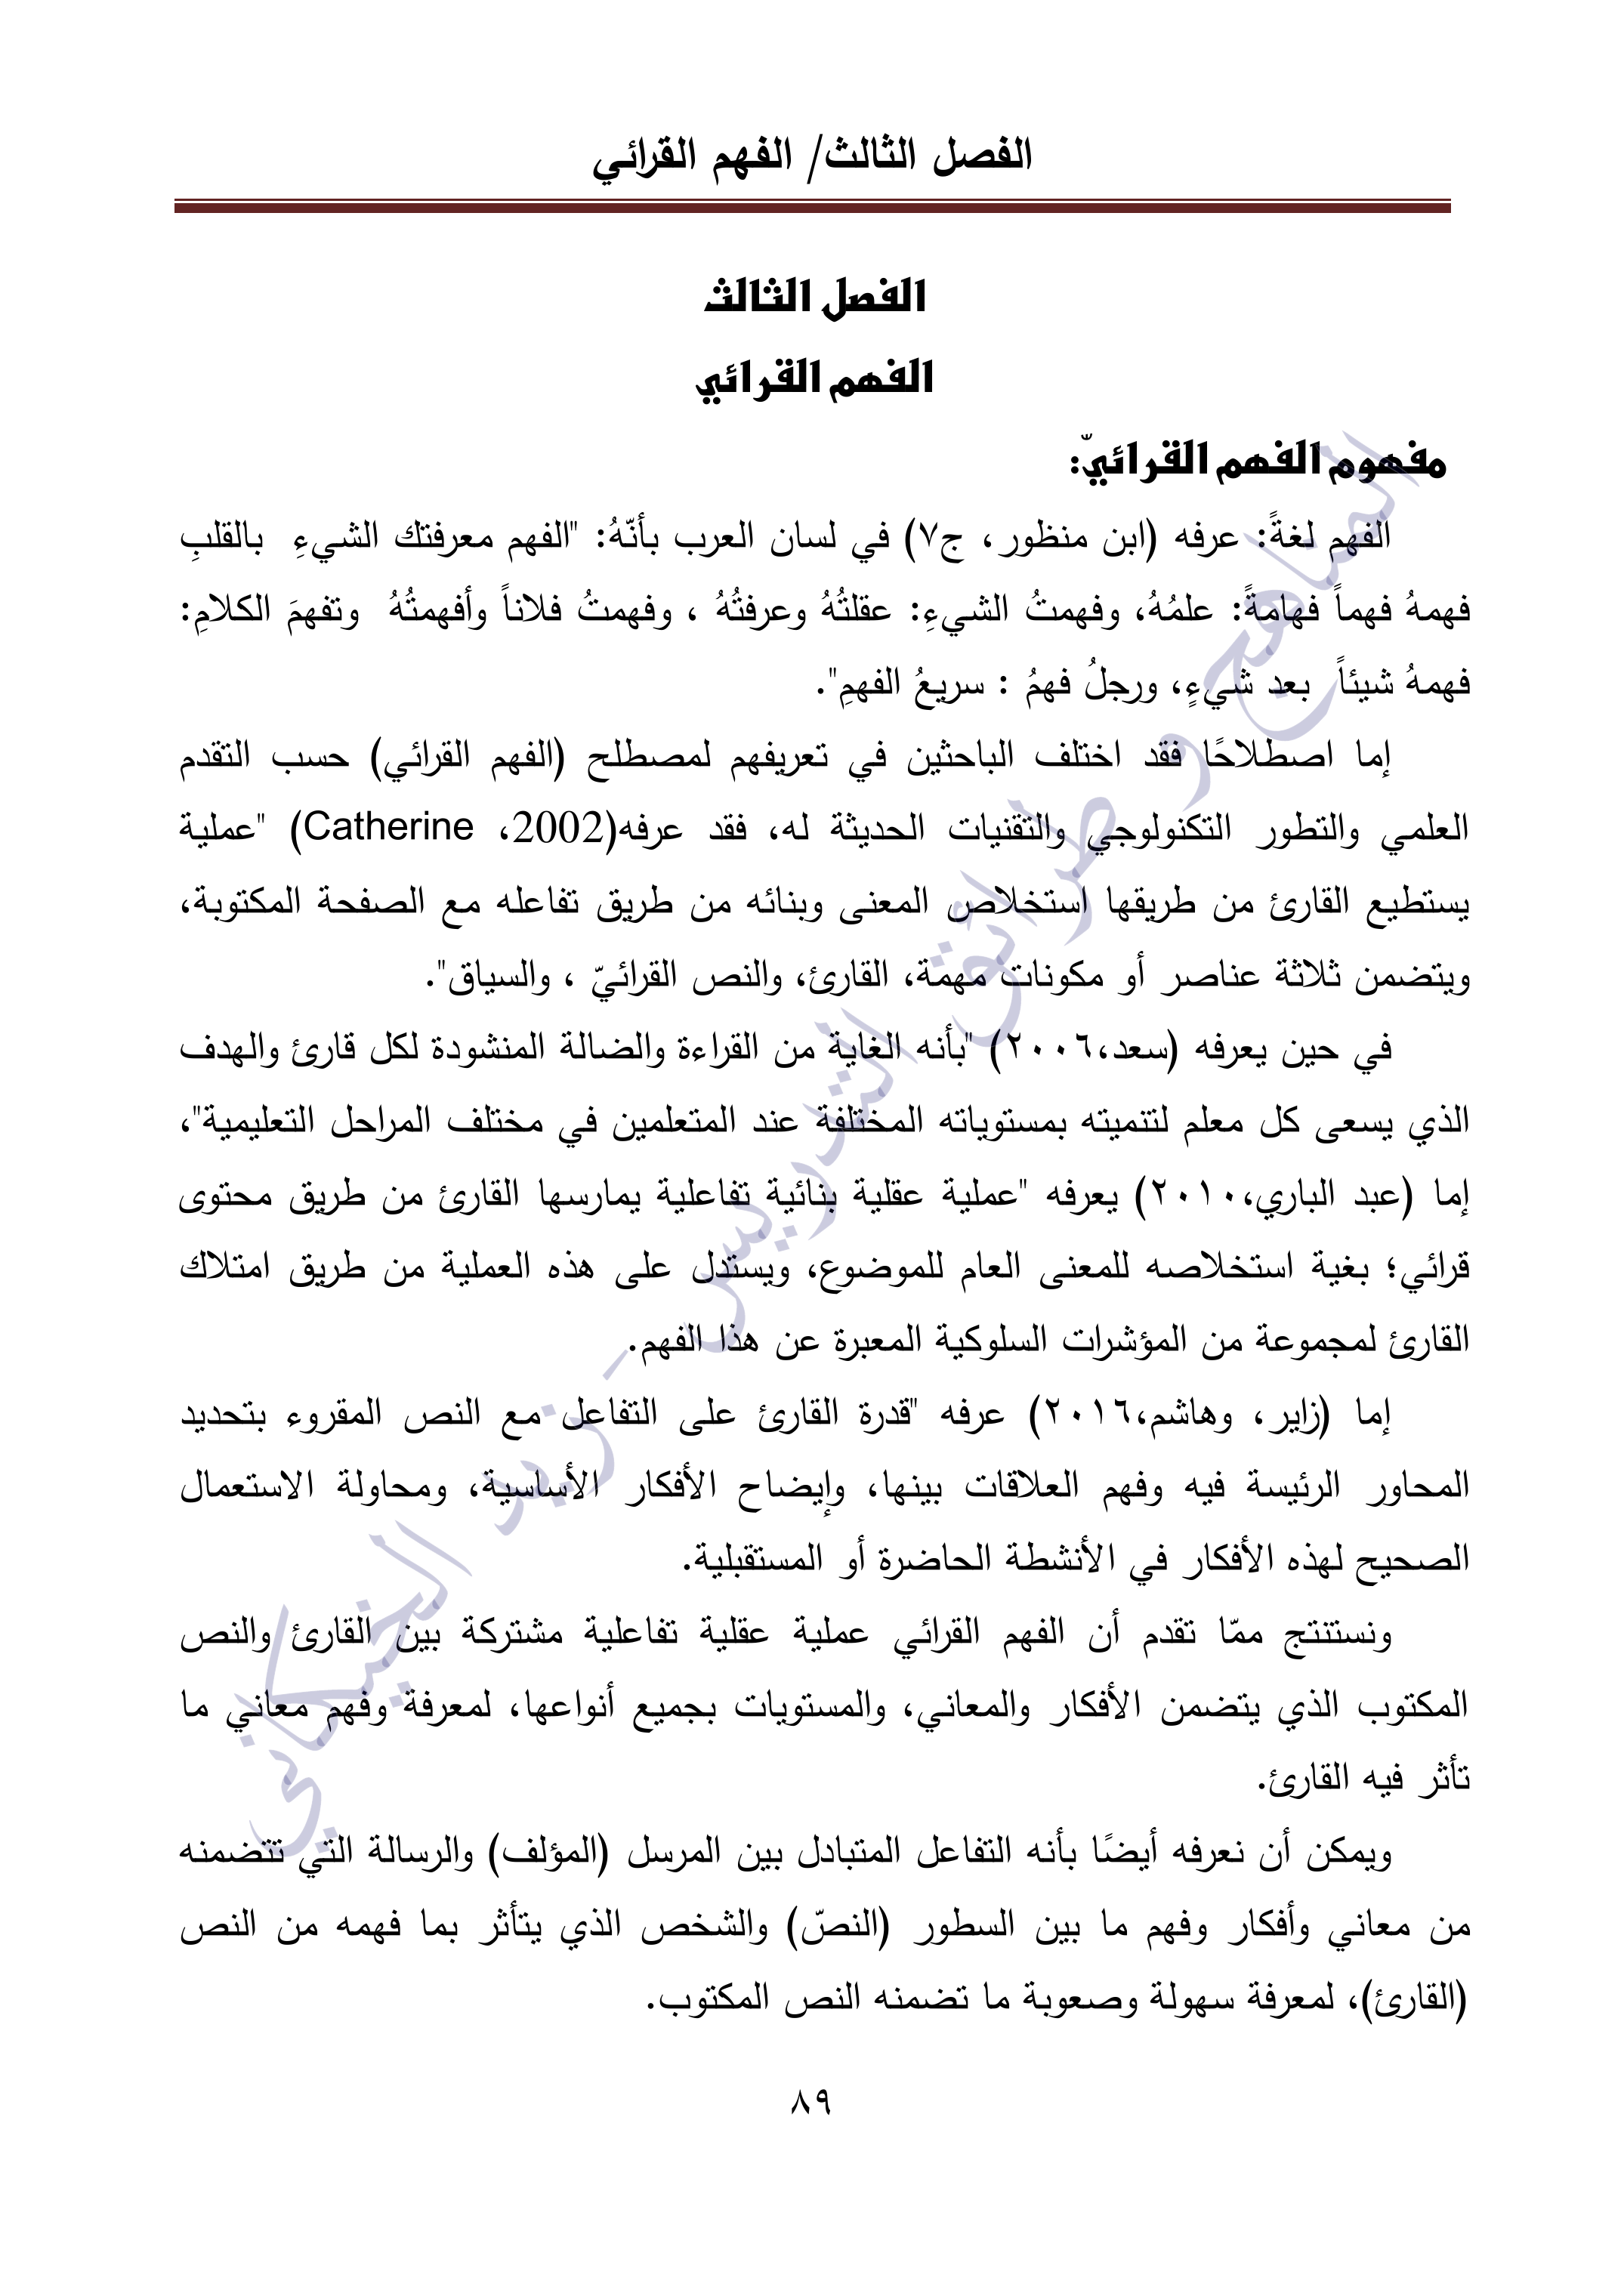 الفصل الثالث/ الفهم القرائي
الفصل الثالث
الفهم القرائي
مفهوم الفهم القرائيّ:
الفهم لغةً: عرفه (ابن منظور، ج٧) في لسان العرب بأنّهُ: "الفهم معرفتك الشيءِ بالقلبِ
فهمهُ فهماً فهامةً: علمُهُ، وفهمتُ الشيءِ: عقلتُهُ وعرفتُهُ ، وفهمتُ فلاناً وأفهمتُهُ وتفهمَ الكلامِ:
فهمهُ شيئاً بعد شيءٍ، ورجلُ فهمُ : سريعُ الفهمِ".
إما اصطلاحًا فقد اختلف الباحثين في تعريفهم لمصطلح (الفهم القرائي) حسب التقدم
العلمي والتطور التكنولوجي والتقنيات الحديثة له، فقد عرفه(2002، Catherine) "عملية
يستطيع القارئ من طريقها استخلاص المعنى وبنائه من طريق تفاعله مع الصفحة المكتوبة،
ويتضمن ثلاثة عناصر أو مكونات مهمة، القارئ، والنص القرائيّ ، والسياق".
في حين يعرفه (سعد،٢٠٠٦) "بأنه الغاية من القراءة والضالة المنشودة لكل قارئ والهدف
الذي يسعى كل معلم لتتميته بمستوياته المختلفة عند المتعلمين في مختلف المراحل التعليمية"،
إما (عبد الباري،٢٠١٠) يعرفه "عملية عقلية بنائية تفاعلية يمارسها القارئ من طريق محتوى
قرائي؛ بغية استخلاصه للمعنى العام للموضوع، ويستدل على هذه العملية من طريق امتلاك
القارئ لمجموعة من المؤشرات السلوكية المعبرة عن هذا الفهم.
إما (زاير، وهاشم،٢٠١٦) عرفه "قدرة القارئ على التفاعل مع النص المقروء بتحديد
المحاور الرئيسة فيه وفهم العلاقات بينها، وإيضاح الأفكار الأساسية، ومحاولة الاستعمال
الصحيح لهذه الأفكار في الأنشطة الحاضرة أو المستقبلية.
ونستنتج ممّا تقدم أن الفهم القرائي عملية عقلية تفاعلية مشتركة بين القارئ والنص
المكتوب الذي يتضمن الأفكار والمعاني، والمستويات بجميع أنواعها، لمعرفة وفهم معاني ما
تأثر فيه القارئ.
ويمكن أن نعرفه أيضًا بأنه التفاعل المتبادل بين المرسل (المؤلف) والرسالة التي تتضمنه
من معاني وأفكار وفهم ما بين السطور (النصّ) والشخص الذي يتأثر بما فهمه من النص
(القارئ)، لمعرفة سهولة وصعوبة ما تضمنه النص المكتوب.
٨٩
المناهج و طرائق التدريس - زيد الخيكاني